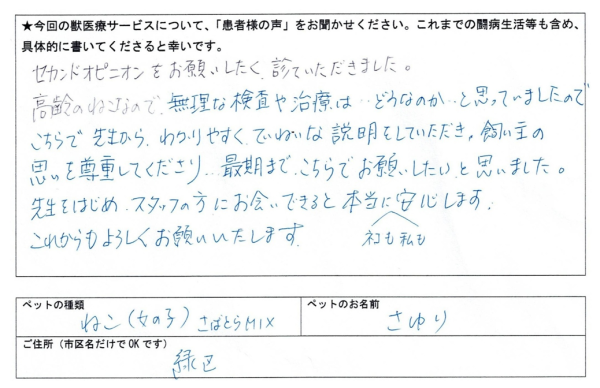 ★今回の獣医療サービスについて、「患者様の声」をお聞かせください。これまでの闘病生活等も含め、
具体的に書いてくださると幸いです。
セカンドオピニオンをお願いしたく、診ていただきました。
高齢のねこなので、無理な検査や治療は…どうなのか…と思っていましたので
こちらで先生から、わかりやすく、ていねいな説明をしていただき、飼い主の
思いを尊重してくださり…最期まで、こちらでお願いしたいと思いました。
先生をはじめ、スタッフの方にお会いできると本当に安心します。
ネコも私も
これからもよろしくお願いいたします。
ペットの種類
ねこ(女の子)さばとらMIX
ペットのお名前
さゆり
ご住所(市区名だけでOKです)
緑区